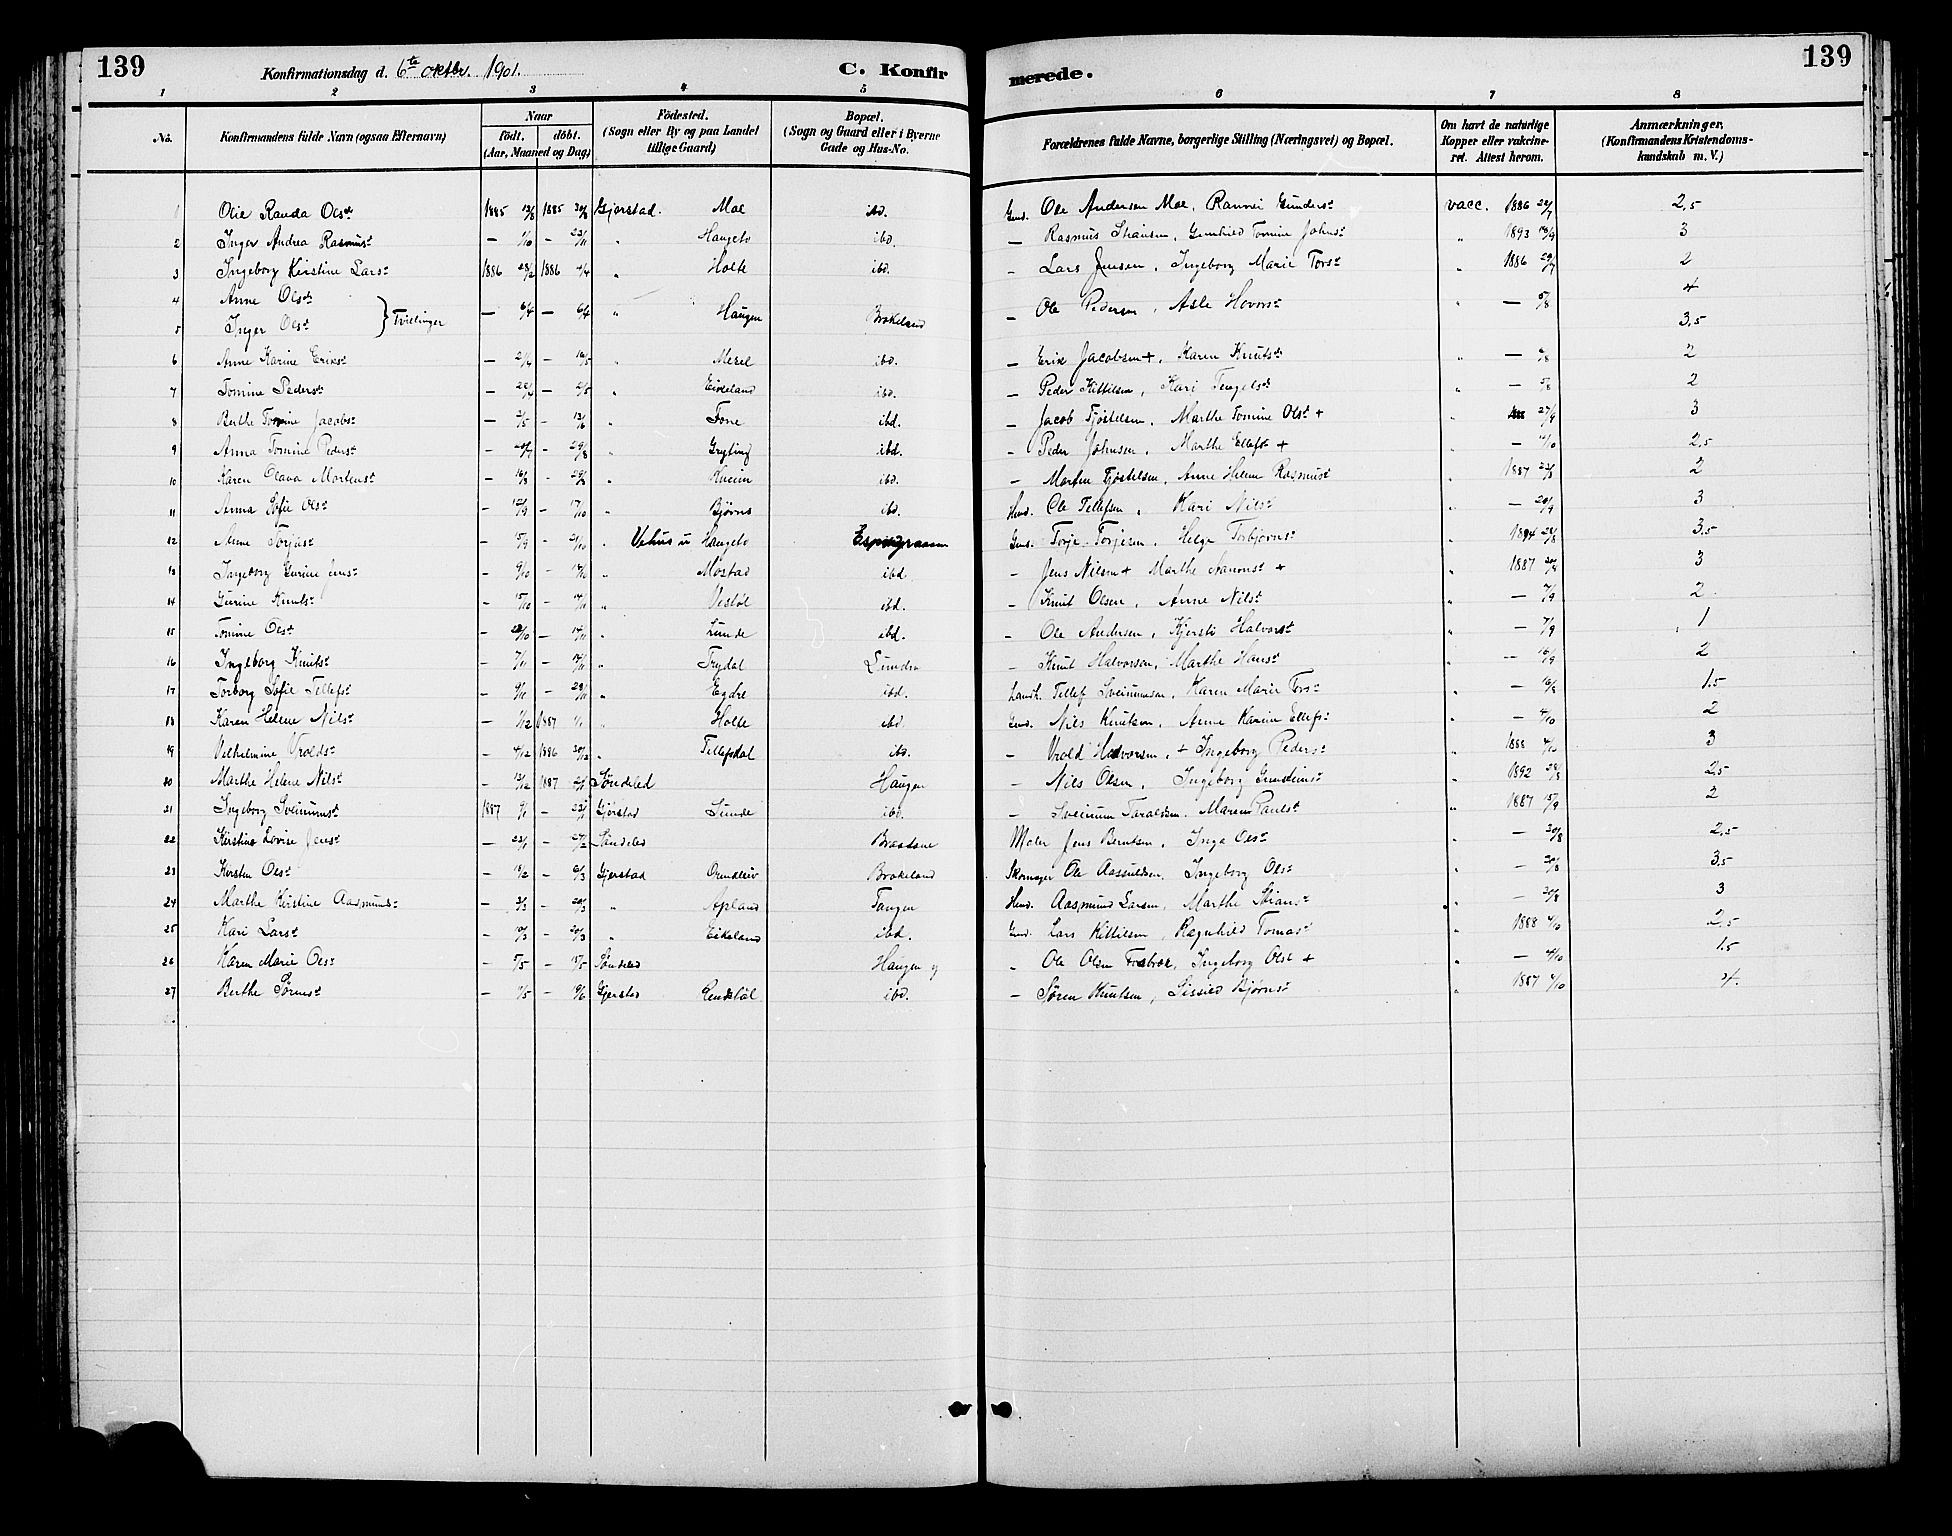 139 Konfirmationsdag d. 6te oktbr. 1901. C. Konfirmerede. 139
1 2 3 4 5 6 7 8
No. Konfirmandens fulde Navn (ogsaa Efternavn) Naar födt. döbt. (Aar, Maaned og Dag) Födested. (Sogn eller By og paa Landet tillige Gaard) Bopæl. (Sogn og Gaard eller i Byerne Gade og Hus-No. Forældrenes fulde Navne, borgerlige Stilling (Næringsvei) og Bopæl. Om havt de naturlige Kopper eller vakcineret. Attest herom. Anmærkninger. (Konfirmandens Kristendomskundskab m. V.)
1 Olie Randa Olsd. 1885 1885 30/8 Gjerstad. Moe ibd. Gmd. Ole Andersen Moe, Rannei Gundersd. vacc. 1886 2,5
2 Inger Andrea Rasmusd. — 1/10 — 23/11 " Haugeto ibd. — Rasmus Stiansen, Gunhild Tomine Johnsd. " 1893 3
3 Ingeborg Kirstine Larsd. 1886 28/2 1886 4/4 " Holte ibd. — Lars Jensen, Ingeborg Marie Torsd. " 1886 29/7 2
4 Anne Olsd. } Tvillinger — 6/4 — 6/4 " Haugen Brokeland — Ole Pedersen, Asle Hovorsd. " — 5/8 4
5 Inger Olsd. 3,5
6 Anne Karine Eriksd. — 2/4 — 16/5 " Mesel ibd. — Erik Jacobsen +, Karen Knutsd. " — 2
7 Tomine Pedersd. — 22/4 — 2/5 " Eikeland ibd. — Peder Kittilsen, Kari Tengelsd. " — 5/8 2
8 Berthe Tomine Jacobsd. — 2/5 — 13/6 " Fone ibd. — Jacob Fjøstelsen, Marthe Tomine Olsd. + " 27/9 3
9 Anna Tomine Pedersd. — 20/7 — 29/8 " Gryting ibd. — Peder Johnsen, Marthe Ellefsd. + " — 2,5
10 Karen Olava Mortensd. — 16/8 — 29/8 " ibd. — Morten Fjøstelsen, Anne Helene Rasmusd. " 1887 23/8 2
11 Anna Sofie Olsd. — 12/9 — 17/10 " Bjørnς ibd. Hmd. Ole Tellefsen, Kari Nilsd. " — 29/9 3
12 Anne Torjusd. — 15/9 — 21/10 " Vehus u Haugeto Gmd. Torje Torjesen, Helge Torbjørnsd. " 3,5
13 Ingeborg Gurine Jensd. — 9/10 — 14/11 " Mostad ibd. — Jens Nilsen + Marthe Aanonsd. + " 1887 3
14 Gurine Knutsd. — 15/10 — 14/11 " Vestøl ibd. — Knut Olsen, Anne Nilsd. " — 7/9 2
15 Tomine Olsd. — 28/10 — 14/11 " Lunde ibd. — Ole Andersen, Kjersti Halvorsd. " — 7/9 1
16 Ingeborg Knutsd. — 7/11 — 14/11 " Trydal — Knut Halvorsen, Marthe Hansd. " — 16/9 2
17 Torborg Sofie Tellefsd. — 9/11 — 29/11 " Egdre ibd. Tellef Sveinumsen, Karen Marie Torsd. " — 16/8 1.5
18 Karen Helene Nilsd. — 1/12 1887 1/1 " Holte ibd. Gmd. Nils Knutsen, Anne Karine Ellefsd. " — 4/10 2
19 Vilhelmine Vroldsd. — 4/12 1886 30/12 " Tellefsdal ibd. — Vrold Halvorsen, + Ingeborg Pedersd. " 1888 4/10 3
20 Marthe Helene Nilsd. — 13/12 1887 Söndeled Haugen — Nils Olsen, Ingeborg Gunsteinsd. " 1892 2,5
21 Ingeborg Sveinumsd. 1887 9/1 — 23/1 Gjerstad Lunde ibd. — Sveinum Taraldsen, Maren Paulsd. " 1887 15/9 2
22 Kirstine Lovise Jensd. — 23/1 — 27/2 Söndeled Braatene Maler Jens Berntsen, Inga Olsd. " — 30/8 2,5
23 Kirsten Olsd. — 18/2 — 6/3 Gjerstad Brokeland Skomager Ole Aasuldsen, Ingeborg Olsd. " — 3.5
24 Marthe Kirstine Aasmundsd. — 3/3 — 20/3 " Apland Tangen Hmd. Aasmund Larsen, Marthe Stiansd. " — 3
25 Kari Larsd. — 10/3 — 20/3 " Eikeland ibd. Gmd. Lars Kittilsen, Ragnhild Tomasd. " 1888 4/10 2,5
26 Karen Marie Olsd. — 5/5 — 15/5 Söndeled Haugen y — Ole Olsen, Ingeborg Olsd. + " — 4/10 1.5
27 Berthe Sörensd. — 1/5 — Gjerstad Rendstöl ibd. — Sören Knutsen, Sissied Bjørnsd. " 1887 4/10 4.